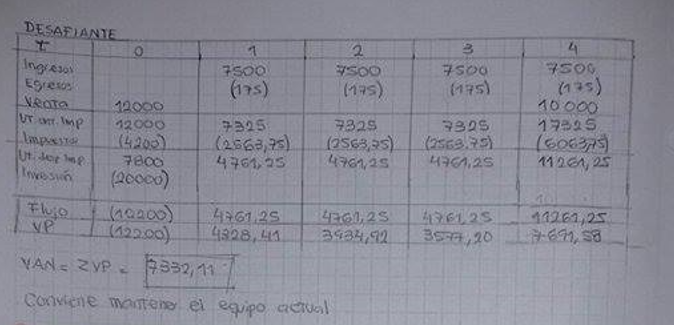 DESAFIANTE
t 0 1 2 3 4
Ingresos 7500 7500 7500 7500
Egresos (175) (175) (175) (175)
Venta 12000 10000
Ut. ant. Imp 12000 7325 7325 7325 17325
Impuestos (4200) (2563,75) (2563,75) (2563.75) (6063,75)
Ut. desp Imp 7800 4761,25 4761,25 4761,25 11261,25
Inversión (20000)
Flujo (12200) 4761,25 4761,25 4761,25 11261,25
VP (12200) 4328,41 3934,92 3577,20 7691,58
VAN = ΣVP = 7332,11
Conviene mantener el equipo actual